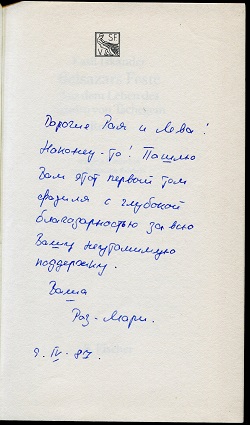 SF
V
Дорогие Рая и Лева!
Наконец-то! Пошлю
Вам этот первый том
с глубокой
благодарностью за всю
Вашу неутомимую
поддержку.
Ваша
Роз-Мари.
9. IV. 87.